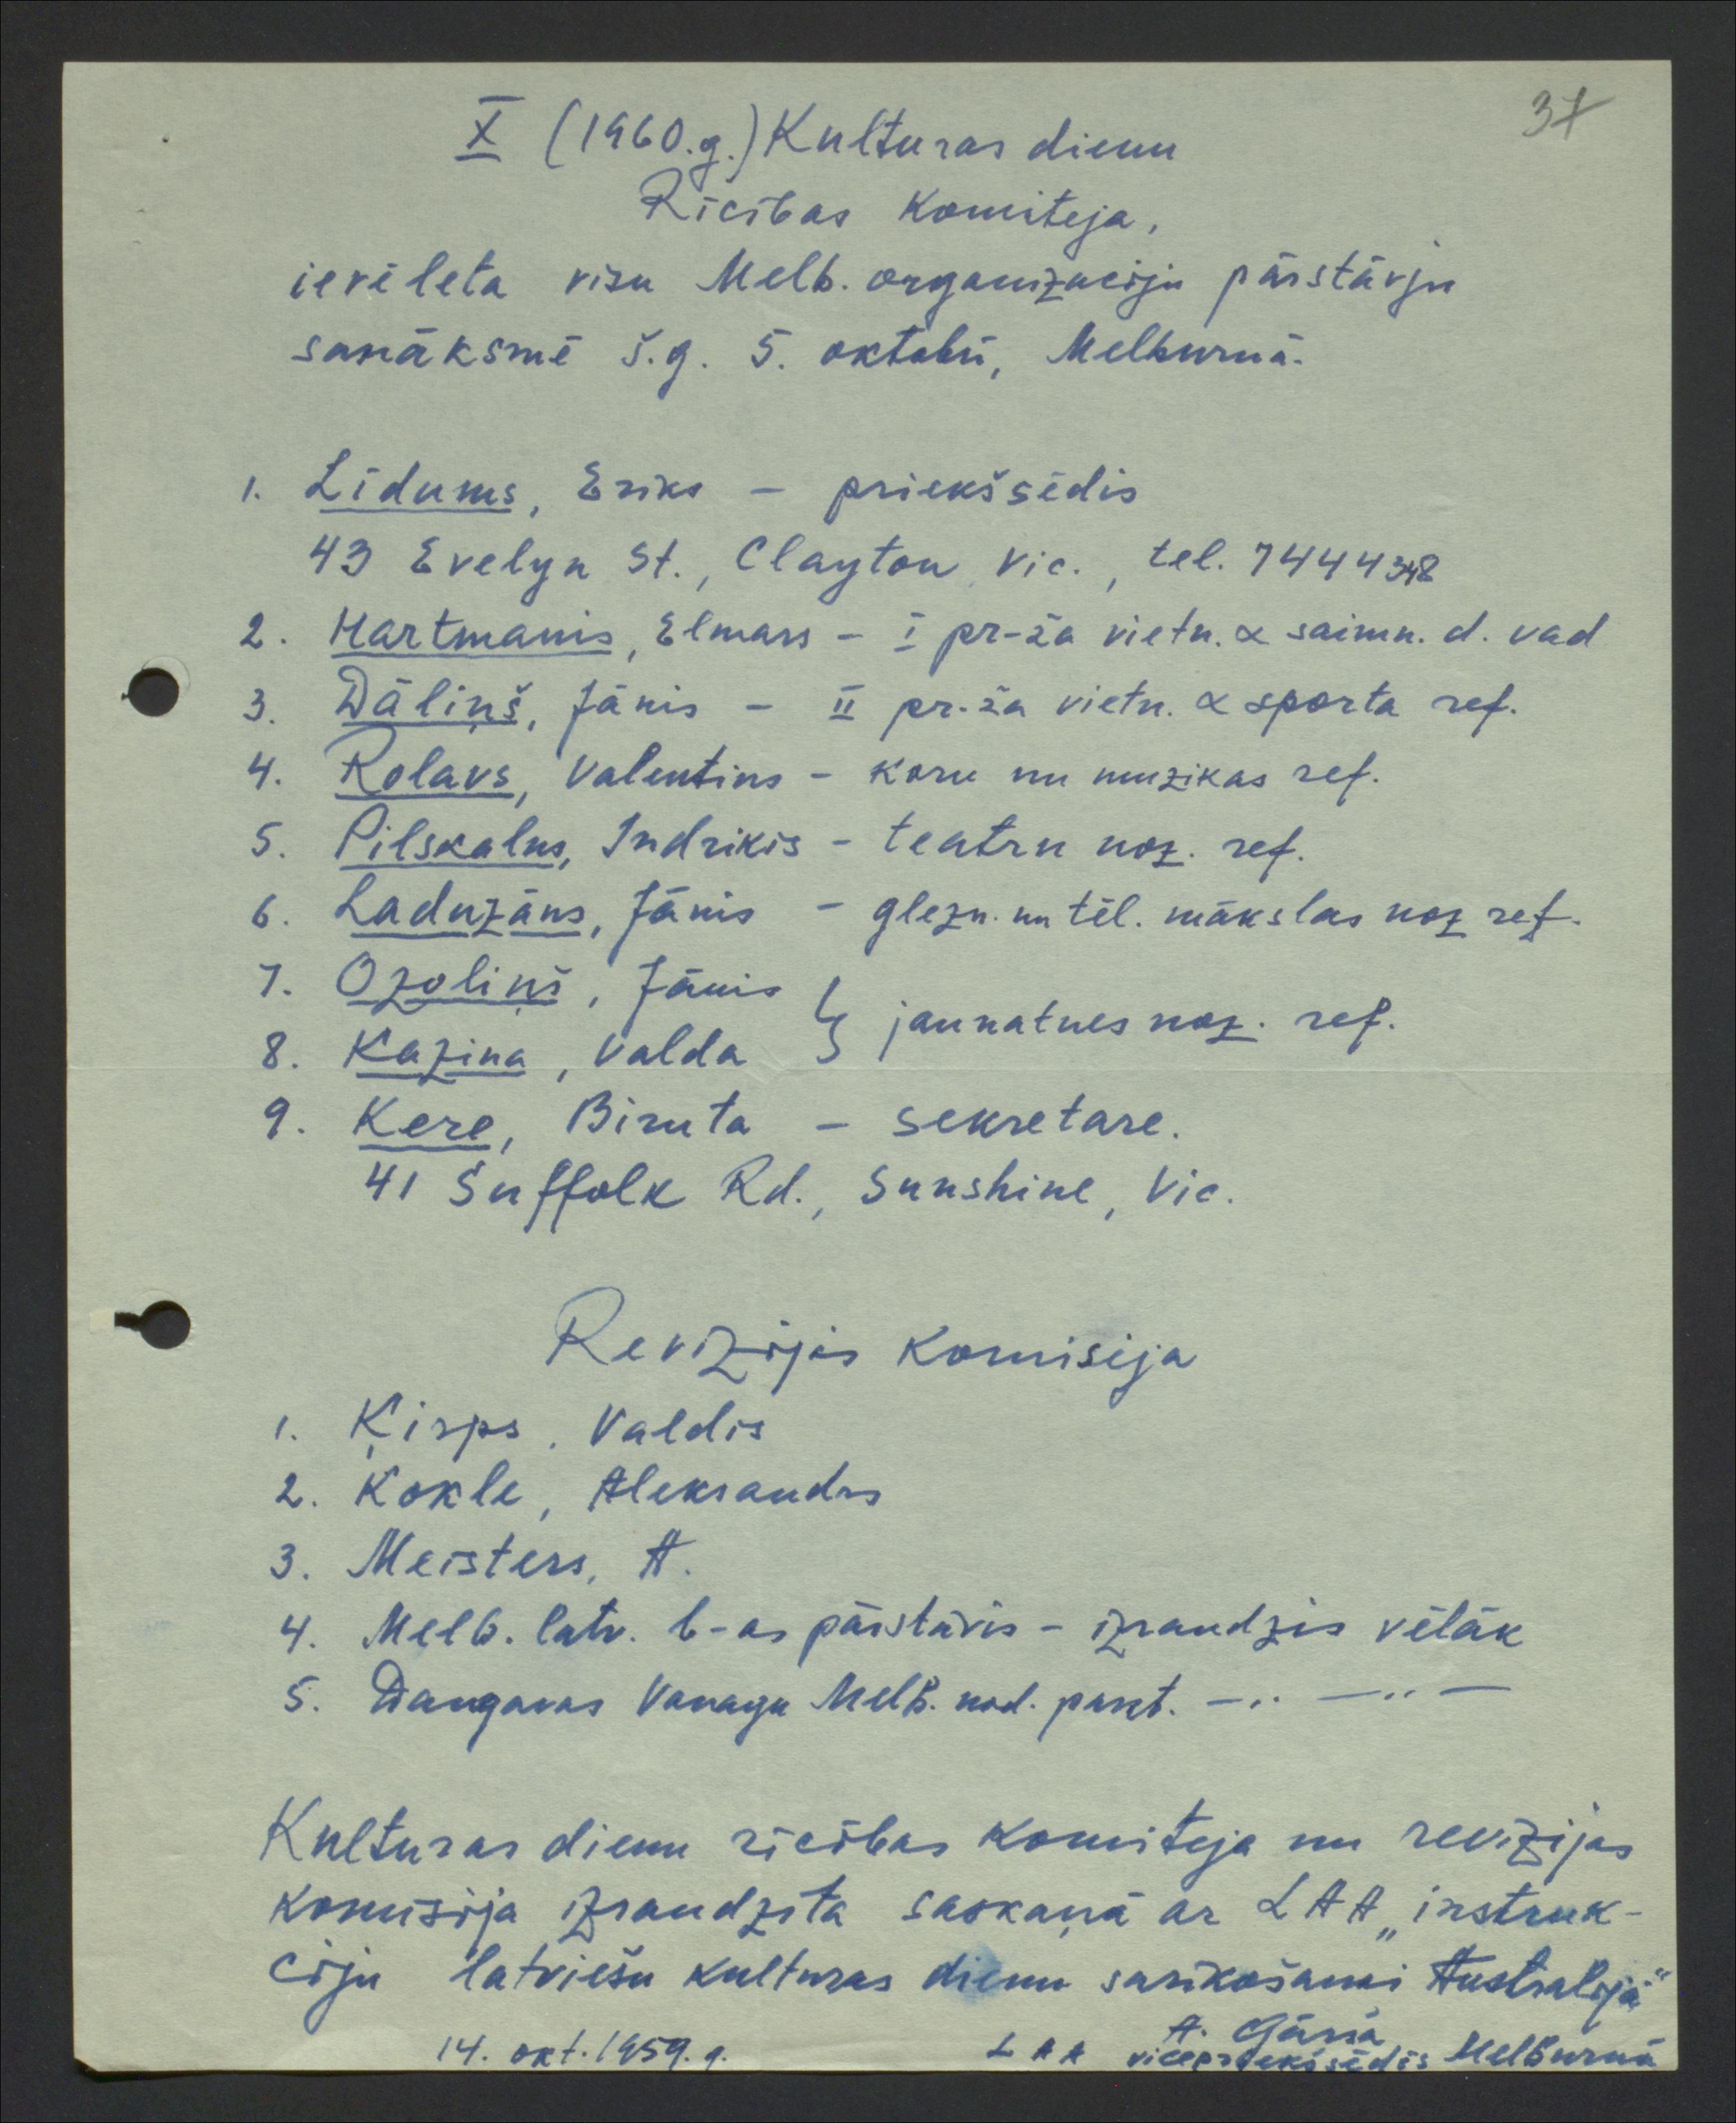 37
X (1960.g.) Kulturas dienu
Rīcības komiteja,
ievēlēta visu Melb. organizāciju pārstāvju
sanāksmē š.g. 5. oktobrī, Melburnā.
1. Līdums, Eriks - priekšsēdis
43 Evelyn St., Clayton, Vic., tel. 7444348
2. Hartmanis, Elmars - I pr-ža vietn. & saimn. d. vad
3. Dāliņš, Jānis - II pr-ža vietn. & sporta ref.
4. Rolavs, Valentins - koru un muzikas ref.
5. Pilskalns, Indrikis - teatru noz. ref.
6. Laduzāns, Jānis - glezn. un tēl. mākslas noz ref.
7. Ozoliņš, Jānis
8. Kazina, Valda } jaunatnes noz. ref.
9. Kere, Biruta - sekretare.
41 Suffolk Rd., Sunshine, Vic.
Revīzijas komisija
1. Ķirps, Valdis
2. Kokle, Aleksandrs
3. Meisters, A.
4. Melb. latv. b-as pārstāvis - izraudzīs vēlāk
5. Daugavas Vanagu Melb. nod. parst. -„ -„ -
Kulturas dienu rīcības komiteja un revīzijas
komisija izraudzīta saskaņā ar LAA „instruk-
ciju latviešu kulturas dienu sarīkošanai Australijā"
14. okt. 1959. g.
LAA vicepriekšsēdis Melburnā